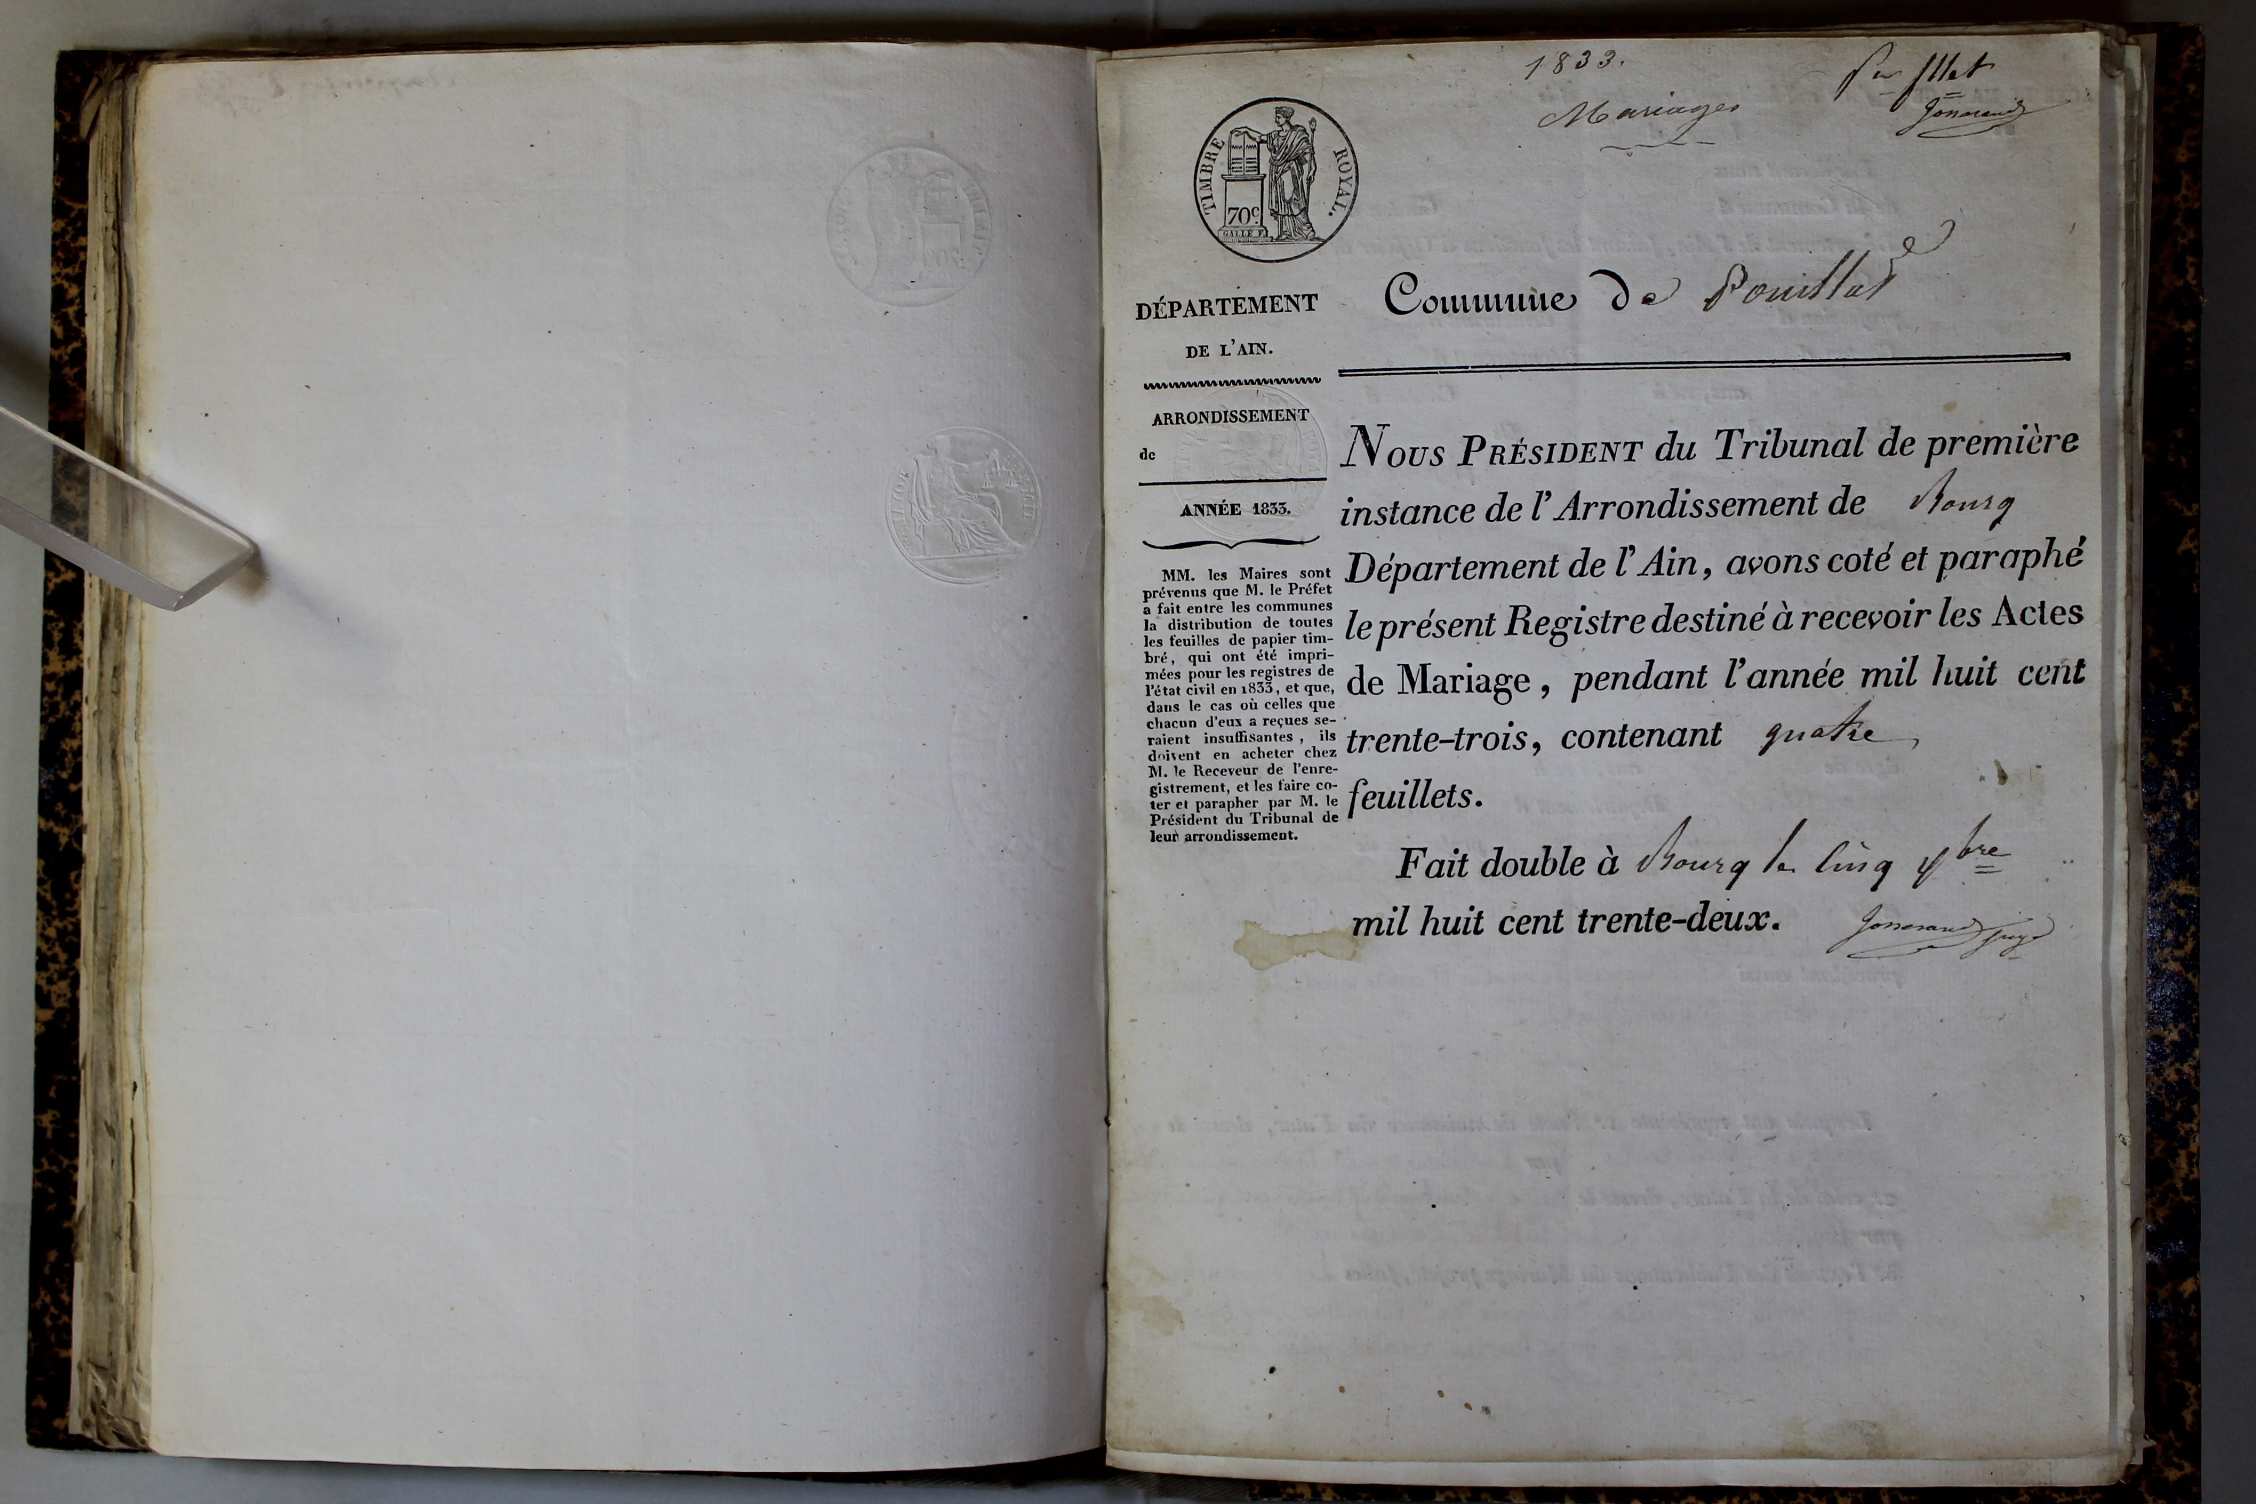 1833.
Mariages
TIMBRE ROYAL.
70c.
GALLE F.
Commune de Pouillat
DÉPARTEMENT
DE L'AIN.
ARRONDISSEMENT
de
ANNÉE 1833.
MM. les Maires sont
prévenus que M. le Préfet
a fait entre les communes
la distribution de toutes
les feuilles de papier tim-
bré, qui ont été impri-
mées pour les registres de
l'état civil en 1833, et que,
dans le cas où celles que
chacun d'eux a reçues se-
raient insuffisantes, ils
doivent en acheter chez
M. le Receveur de l'enre-
gistrement, et les faire co-
ter et parapher par M. le
Président du Tribunal de
leur arrondissement.
NOUS PRÉSIDENT du Tribunal de première
instance de l'Arrondissement de Bourg
Département de l'Ain, avons coté et paraphé
le présent Registre destiné à recevoir les Actes
de Mariage, pendant l'année mil huit cent
trente-trois, contenant quatre
feuillets.
Fait double à Bourg le cinq xbre
mil huit cent trente-deux.